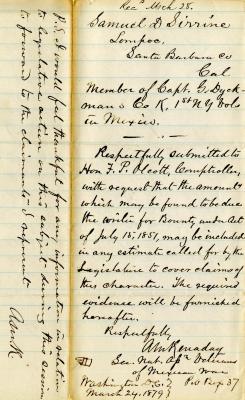 Rec'd Mch 28.
Samuel D Sirrine
Lompoc,
Santa Barbara Co
Cal
Member of Capt. G. Dyck-
mans Co K, 1st N.Y. Vols
in Mexico.
Respectfully submitted to
Hon. F. P. Olcott, Comptroller,
with request that the amount
which may be found to be due
the writer for Bounty, under Act
of July 15, 1851, may be included
in any estimate called for by the
Legislature to cover claims of
this character. The required
evidence will be furnished
hereafter.
Respectfully
A M Kenaday
Sec. Nat. Assn Veterans
of Mexican War
Washington D.C.
March 24, 1879
P.O. Box 37
P.S. I would feel thankful for any information in relation
to legislative action on this subject during this session
to forward to the claimants I represent
AMK